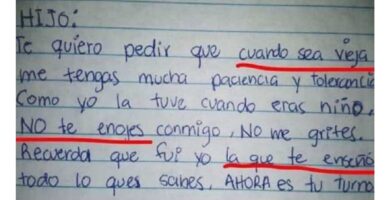 HIJO:
Te quiero pedir que cuando sea vieja
me tengas mucha paciencia y tolerancia
Como yo la tuve cuando eras niño.
NO te enojes conmigo, NO me grites.
Recuerda que fui yo la que te enseñó
todo lo ques sabes, AHORA es tu turno